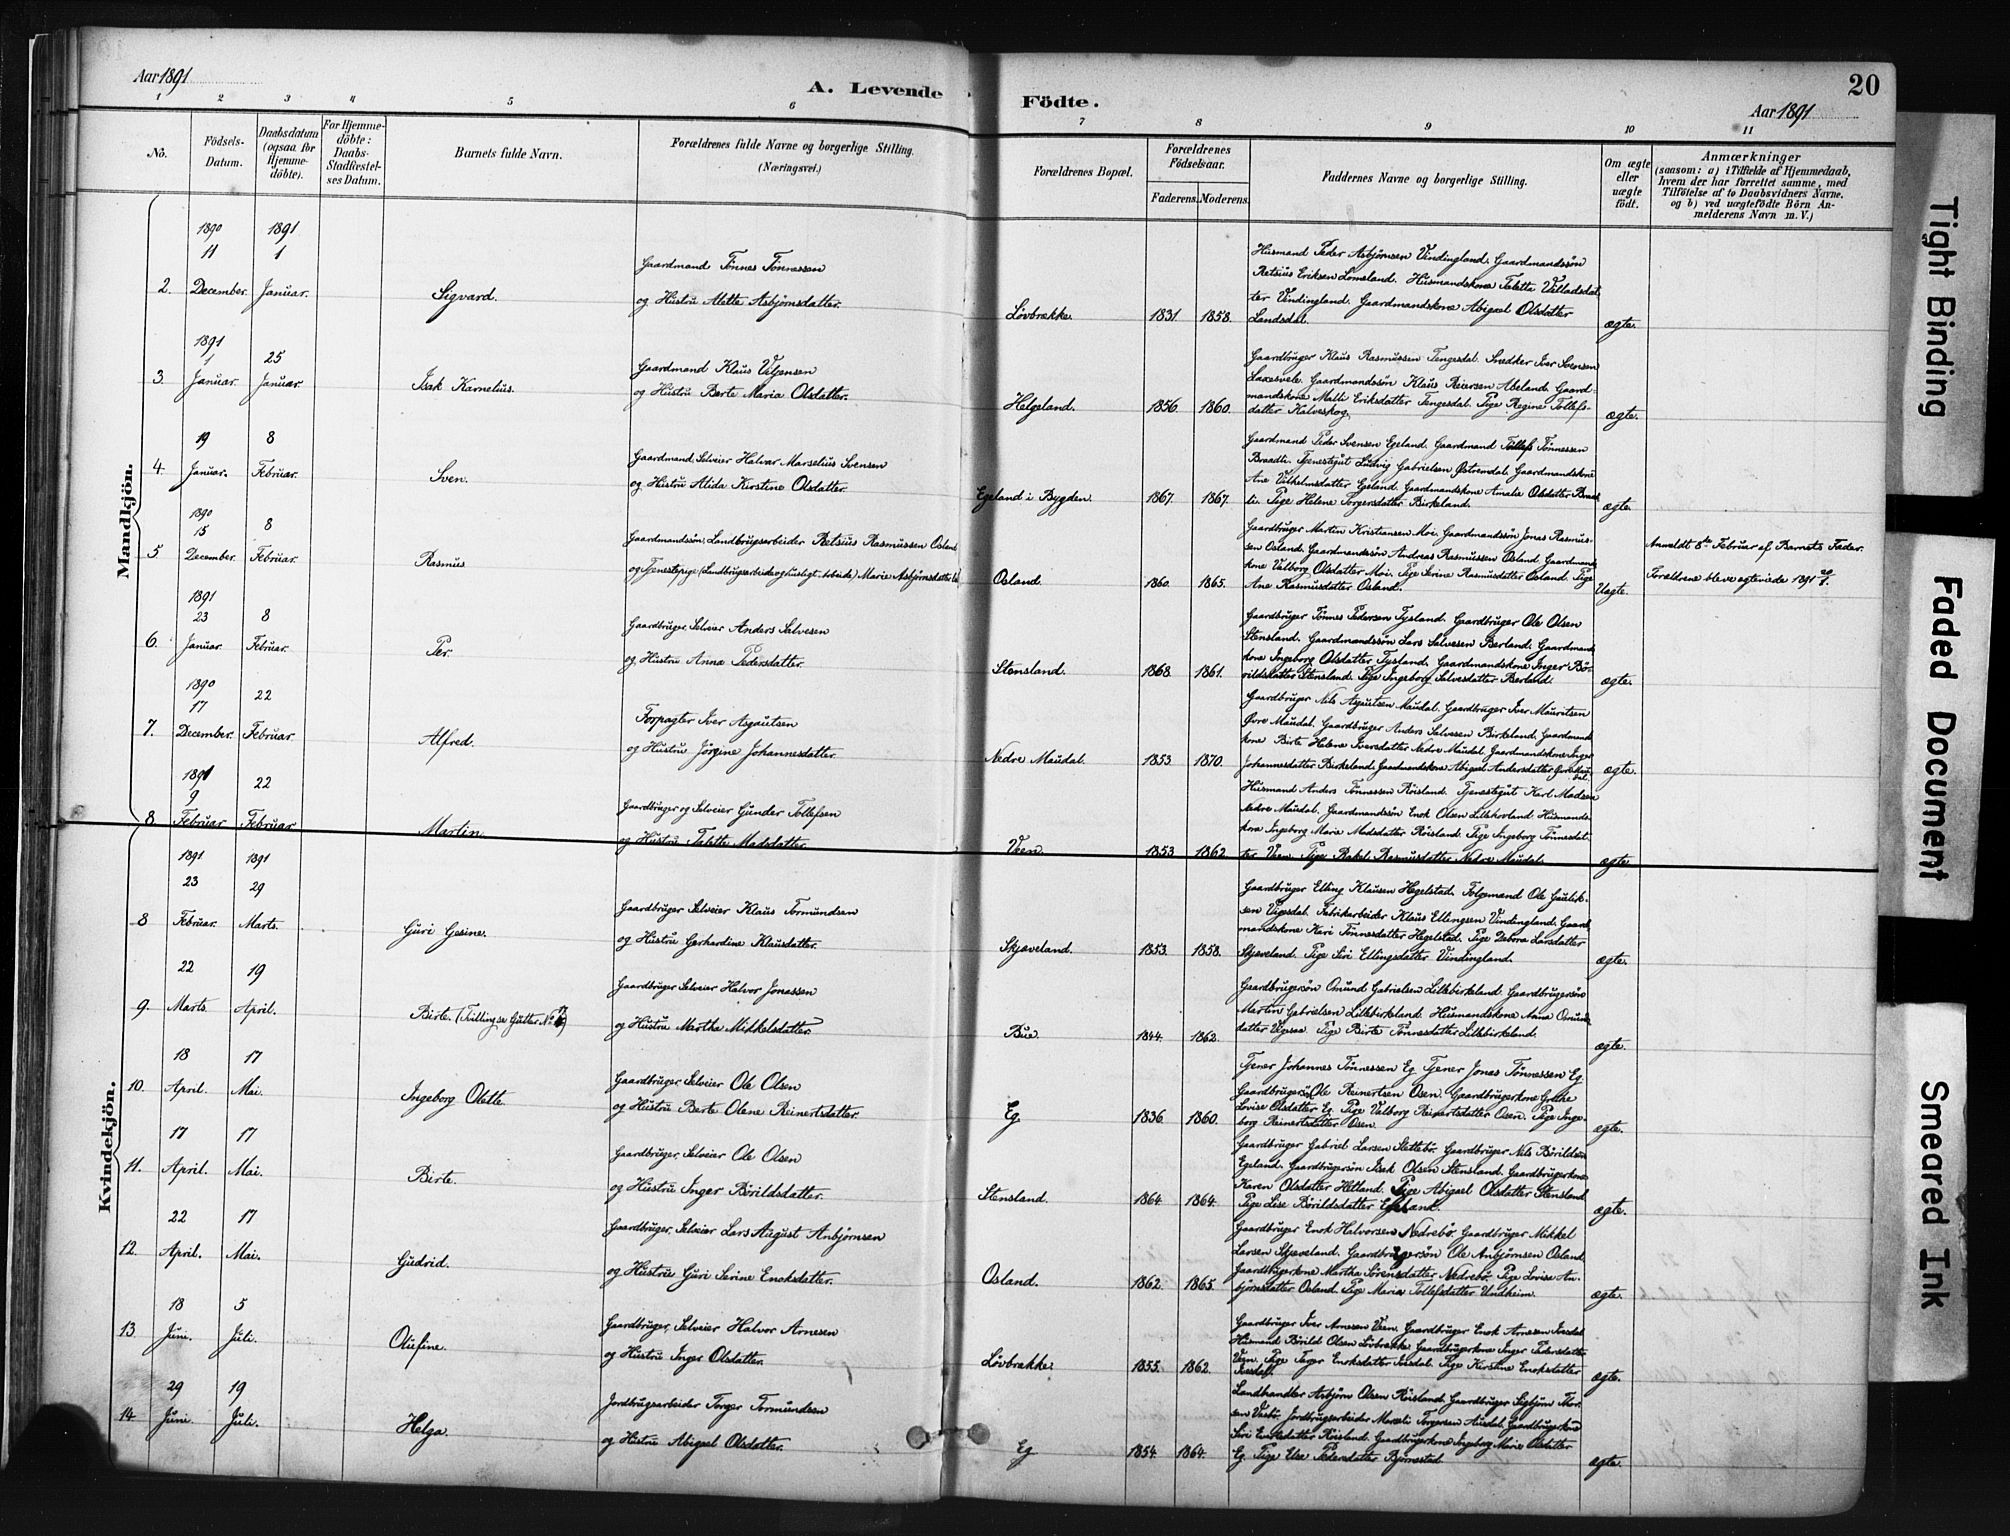 Aar 1891
A. Levende Födte.
20
Aar 1891
1 2 3 4 5 6 7 8 9 10 11
No.
Födsels-Datum.
Daabsdatum (ogsaa for Hjemme-döbte).
For Hjemme-döbte: Daabs-Stadfæstel-ses Datum.
Barnets fulde Navn.
Forældrenes fulde Navne og borgerlige Stilling. (Næringsvei.)
Forældrenes Bopæl.
Forældrenes Födselsaar.
Faderens. Moderens.
Faddernes Navne og borgerlige Stilling.
Om ægte eller uægte födt.
Anmærkninger
(saasom: a) i Tilfælde af Hjemmedaab,
hvem der har forrettet samme, med
Tilföielse af to Daabsvidners Navne,
og b) ved uægtefödte Börn An-
melderens Navn m. V.)
Mandkjön.
1890 1891
11 1
2. December. Januar. Sigvard.
Gaardmand Tönnes Tönnessen
og Hustru Alette Asbjörnsdatter.
Lövbrække. 1831. 1858.
Husmand Peder Asbjörnsen Vindingland. Gaardmandssön
Retsius Eriksen Lomeland. Husmandskone Taletta Villadsdat
ter Vindingland. Gaardmandskone Abigael Olsdatter
Landsdal.
ægte.
1891
1 25
3. Januar. Januar. Isak Karnelius.
Gaardmand Klaus Veljensen
og Hustru Berte Maria Olsdatter.
Helgeland. 1856. 1860.
Gaardbruger Klaus Rasmussen Tengesdal. Snedker Iver Svensen
Laxesvele. Gaardmandssön Klaus Reiersen Abeland. Gaard-
mandskone Malli Eriksdatter Tengesdal. Pige Regine Tollefs-
datter Kalveskog.
ægte.
19 8
4. Januar. Februar. Sven.
Gaardmand, Selveier Halvar Marselius Svensen
og Hustru Alida Kirstine Olsdatter.
Egeland i Bygden. 1867. 1867.
Gaardmand Peder Svensen Egeland. Gaardmand Tollefs Tönnessen
Braadli. Tjenestegut Ludvig Gabrielsen Östremdal. Gaardmandskone
Ane Vilhelmsdatter Egeland. Gaardmandskone Amalie Olsdatter Braad
li. Pige Helene Torgersdatter Birkeland.
ægte.
1890
15 8
5 December. Februar. Rasmus
Gaardmandssön, Landbrugsarbeider Retsius Rasmussen Osland
og Tjenestepige (Landbrugsarbeide og huusligt Arbeide) Marie Asbjörnsdatter
Osland. 1860. 1865.
Gaardbruger Martin Kristiansen Moi. Gaardmandssön Jonas Rasmus-
sen Osland. Gaardmandssön Andreas Rasmussen Osland. Gaardmands
kone Valborg Olsdatter Moi. Pige Serine Rasmusdatter Osland. Pige
Ane Rasmusdatter Osland.
Uægte.
Anmeldt 8de Februar af Barnets Fader.
Forældrene bleve ægteviede 1891
1891
23 8
6. Januar. Februar. Per.
Gaardbruger, Selveier Anders Salvesen
og Hustru Anna Pedersdatter.
Stensland. 1868. 1861.
Gaardbruger Tönnes Pedersen Tysland. Gaardbruger Ole Olsen
Stensland. Gaardmandssön Lars Salvesen Berland. Gaardmands
kone Ingeborg Olsdatter Tysland. Gaardmandskone Inger Bö-
rildsdatter Stensland. Pige Ingeborg Salvesdatter Berland.
ægte.
1890
17 22
7. December. Februar. Alfred.
Forpagter Iver Asgautsen
og Hustru Jörgine Johannesdatter.
Nedre Maudal. 1853. 1870.
Gaardbruger Nils Asgautsen Maudal. Gaardbruger Iver Mauritsen
Övre Maudal. Gaardbruger Anders Salvesen Birkeland. Gaardmands
kone Birte Helene Iversdatter Nedre Maudal. Gaardmandskone Inger
Johannesdatter Birkeland. Gaardmandskone Abigael Andersdatter Övre Maudal.
ægte.
1891
9 22
8 Februar Februar Martin.
Gaardbruger og Selveier Gunder Tollefsen
og Hustru Talette Madsdatter.
Veen. 1853 1862.
Husmand Anders Tönnessen Röisland. Tjenestegut Karl Madsen
Nedre Maudal. Gaardmandssön Enok Olsen Lillehovland. Husmands
kone Ingeborg Marie Madsdatter Röisland. Pige Ingeborg Tönnesdat-
ter Veen. Pige Rakel Rasmusdatter Nedre Maudal.
ægte.
Kvindekjön.
1891 1891
23 29
8 Februar. Marts. Guri Gesine.
Gaardbruger Selveier Klaus Tormundsen
og Hustru Gerhardine Klausdatter.
Skjæveland. 1853. 1858.
Gaardbruger Elling Klausen Hegelstad. Folgemand Ole Gaulik-
sen Vigesdal. Fabrikarbeider Klaus Ellingsen Vindingland. Gaard
mandskone Kari Tönnesdatter Hegelstad. Pige Debora Larsdatter
Skjæveland. Pige Siri Ellingsdatter Vindingland.
ægte.
22 19
9. Marts. April. Birte. (Tvilling se Gutter No )
Gaardbruger Selveier Halvor Jonassen
og Hustru Martha Mikkelsdatter.
Bue. 1844. 1862.
Gaardbrugersön Omund Gabrielsen Lillebirkeland. Gaardbrugersön
Martin Gabrielsen Lillebirkeland. Husmandskone Anna Omund
datter Vigesaa. Pige Birte Tönnesdatter Lillebirkeland.
ægte.
18 17
10. April. Mai. Ingeborg Olette.
Gaardbruger, Selveier Ole Olsen
og Hustru Berte Olene Reinertsdatter.
Eg. 1836. 1860.
Tjener Johannes Tönnessen Eg. Tjener Jonas Tönnessen Eg.
Gaardbrugersön Ole Reinertsen Osen. Gaardbrugerkone
Lovise Olsdatter Eg. Pige Valborg Reinertsdatter Osen. Pige Inge-
borg Reinertsdatter Osen.
ægte.
17 17
11. April. Mai. Birte.
Gaardbruger, Selveier Ole Olsen
og Hustru Inger Börildsdatter.
Stensland. 1864. 1864.
Gaardbruger Gabriel Larsen Slettebö. Gaardbruger Nils Börildsen
Egeland. Gaardbrugersön Isak Olsen Stensland. Gaardbrugerkone
Karen Olsdatter Hetland. Pige Abigael Olsdatter Stensland
Pige Lise Börildsdatter Egeland.
ægte.
22 17
12. April. Mai. Gudrid.
Gaardbruger, Selveier Lars August Anbjörnsen
og Hustru Guri Serine Enoksdatter.
Osland. 1862. 1865.
Gaardbruger Enok Halvorsen Nedrebö. Gaardbruger Mikkel
Larsen Skjæveland. Gaardbrugersön Ole Anbjörnsen Osland.
Gaardbrugerkone Martha Sörensdatter Nedrebö. Pige Lovise An-
björnsdatter Osland. Pige Maria Tollefsdatter Undheim.
ægte.
18 5
13. Juni. Juli. Olufine.
Gaardbruger, Selveier Halvor Arnesen
og Hustru Inger Olsdatter.
Lövbrække. 1855. 1862.
Gaardbruger Iver Arnesen Veen. Gaardbruger Enok Arnesen Ivesdal
Husmand Börild Olsen Lövbrække. Gaardbrugerkone Inger Pedersdatter
Veen. Pige Inger Enoksdatter Ivesdal. Pige Kirstine Enoksdatter
Ivesdal.
ægte.
29 19
14 Juni. Juli. Helga.
Jordbrugsarbeider Torger Tormundsen
og Hustru Abigael Olsdatter.
Eg 1854. 1864.
Landhandler Asbjörn Olsen Röisland. Gaardbruger Sigbjörn Thor-
sen Vasbö. Jordbrugarbeider Torgersen Ausdal. Gaardbrugerkone
Siri Enoksdatter Röisland. Gaardbrugerkone Ingeborg Marie Olsdatter
Eg. Pige Else Pedersdatter Bjørnestad.
ægte.
Tight Binding
Faded Document
Smeared Ink